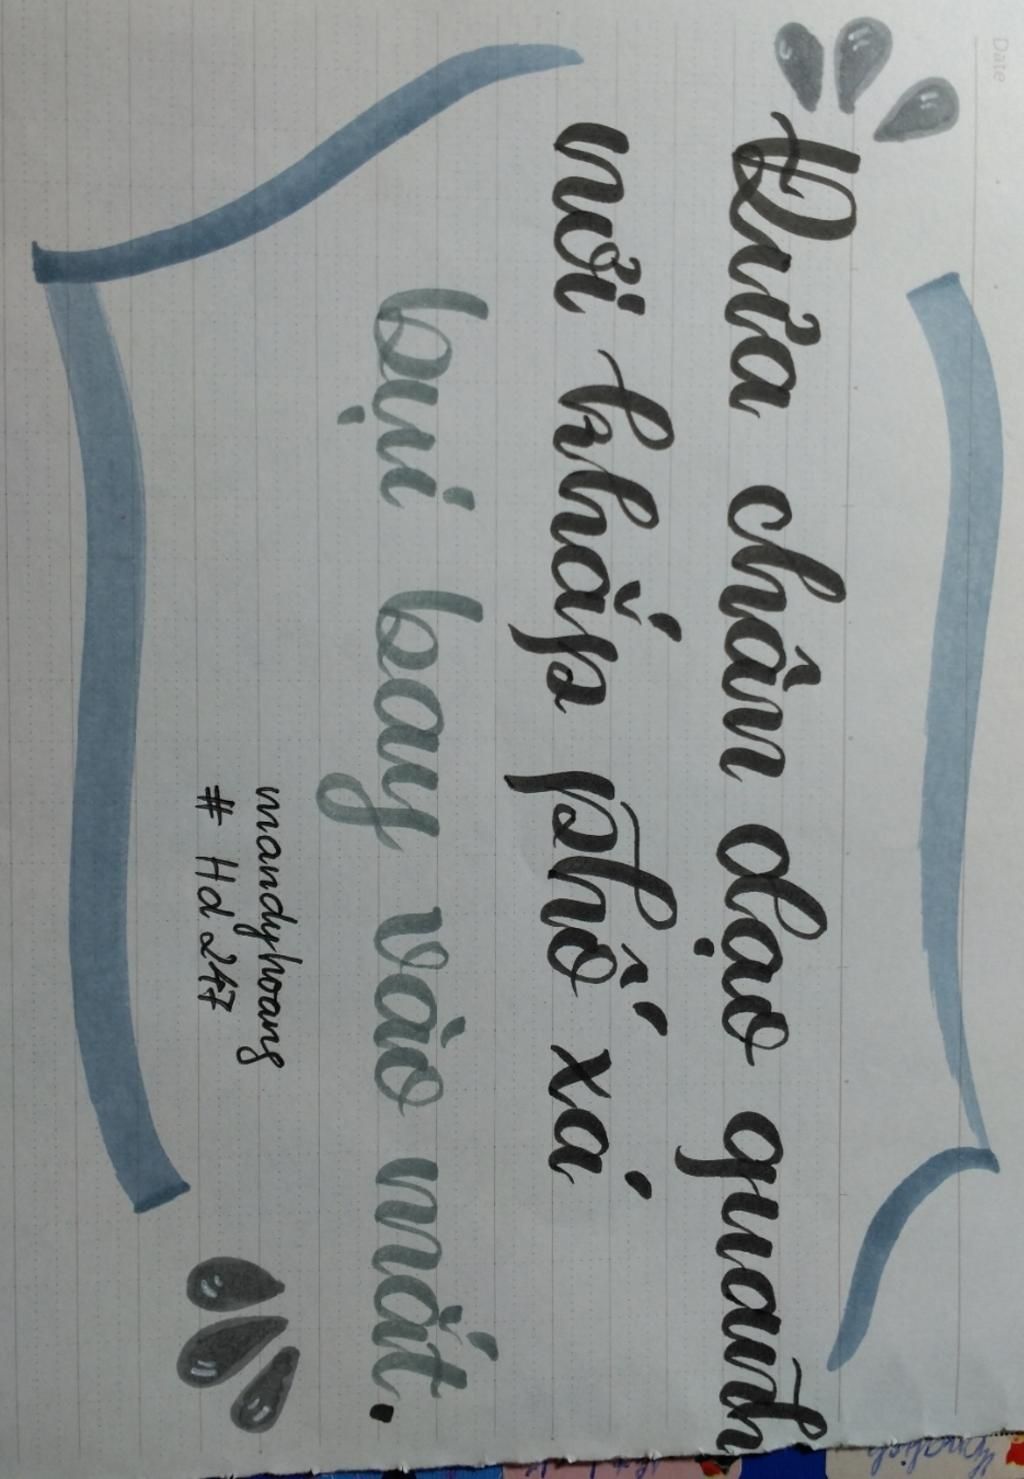 Date
Đưa chân dạo quanh
nơi khắp phố xá
bụi bay vào mắt.
mandyhoang
# Hd 247
English